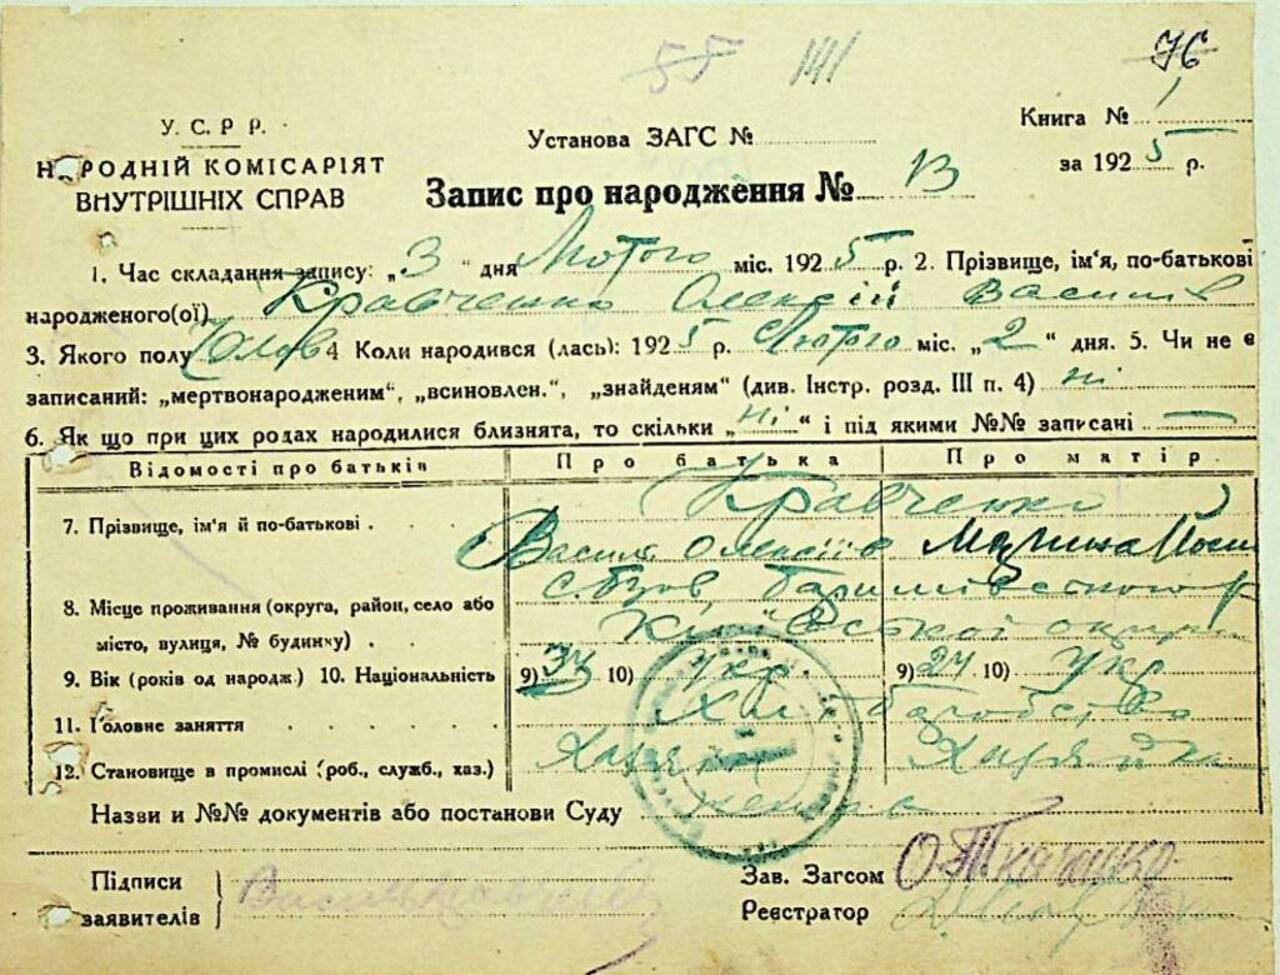 57 141 76
У. С. Р Р.
НАРОДНІЙ КОМІСАРІЯТ
ВНУТРІШНІХ СПРАВ
Установа ЗАГС №
Книга № 1
за 1925 р.
Запис про народження № 13
1. Час складання запису: „3“ дня Лютого міс. 1925 р. 2. Прізвище, ім'я, по-батькові
народженого(ої) Кравченко Олексій Василів
3. Якого полу Чолов 4 Коли народився (лась): 1925 р. Лютого міс. „2“ дня. 5. Чи не є
записаний: „мертвонародженим“, „всиновлен.“, „знайденям“ (див. Інстр. розд. III п. 4) ні
6. Як що при цих родах народилися близнята, то скільки „ні“ і під якими №№ записані —
Відомості про батьків Про батька Про матір.
Кравченко
7. Прізвище, ім'я й по-батькові . Василь Олексіїв
8. Місце проживання (округа, район, село або с.
місто, вулиця, № будинку) . Київської округи
9. Вік (років од народж.) 10. Національність 9) 34 10) Укр 9) 24 10) Укр
11. Головне заняття Хліборобство
12. Становище в промислі (роб., служб., хаз.) Хазяїн Хазяйка
Назви и №№ документів або постанови Суду
Підписи
заявителів
Зав. Загсом О Ткаченко
Реєстратор